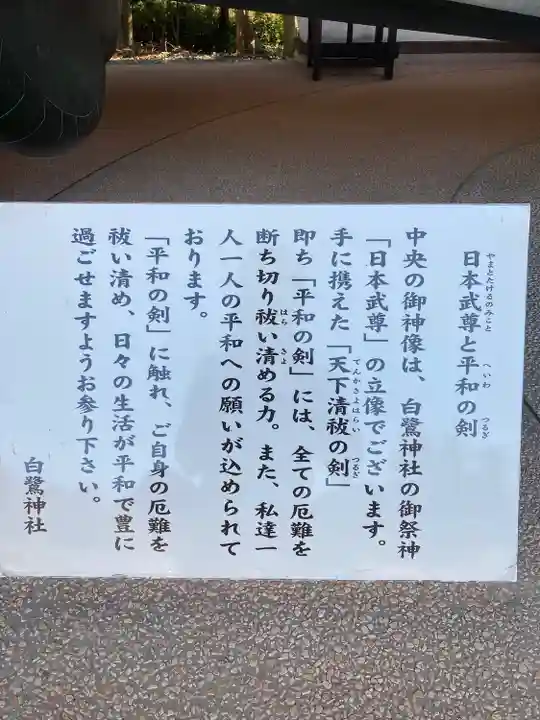 日本武尊と平和の剣
やまとたけるのみこと へいわ つるぎ
中央の御神像は、白鷺神社の御祭神
「日本武尊」の立像でございます。
手に携えた「天下清祓の剣」
てんかさよはらい つるぎ
即ち「平和の剣」には、全ての厄難を
断ち切り祓い清める力。また、私達一
はら さよ
人一人の平和への願いが込められて
おります。
「平和の剣」に触れ、ご自身の厄難を
祓い清め、日々の生活が平和で豊に
過ごせますようお参り下さい。
白鷺神社